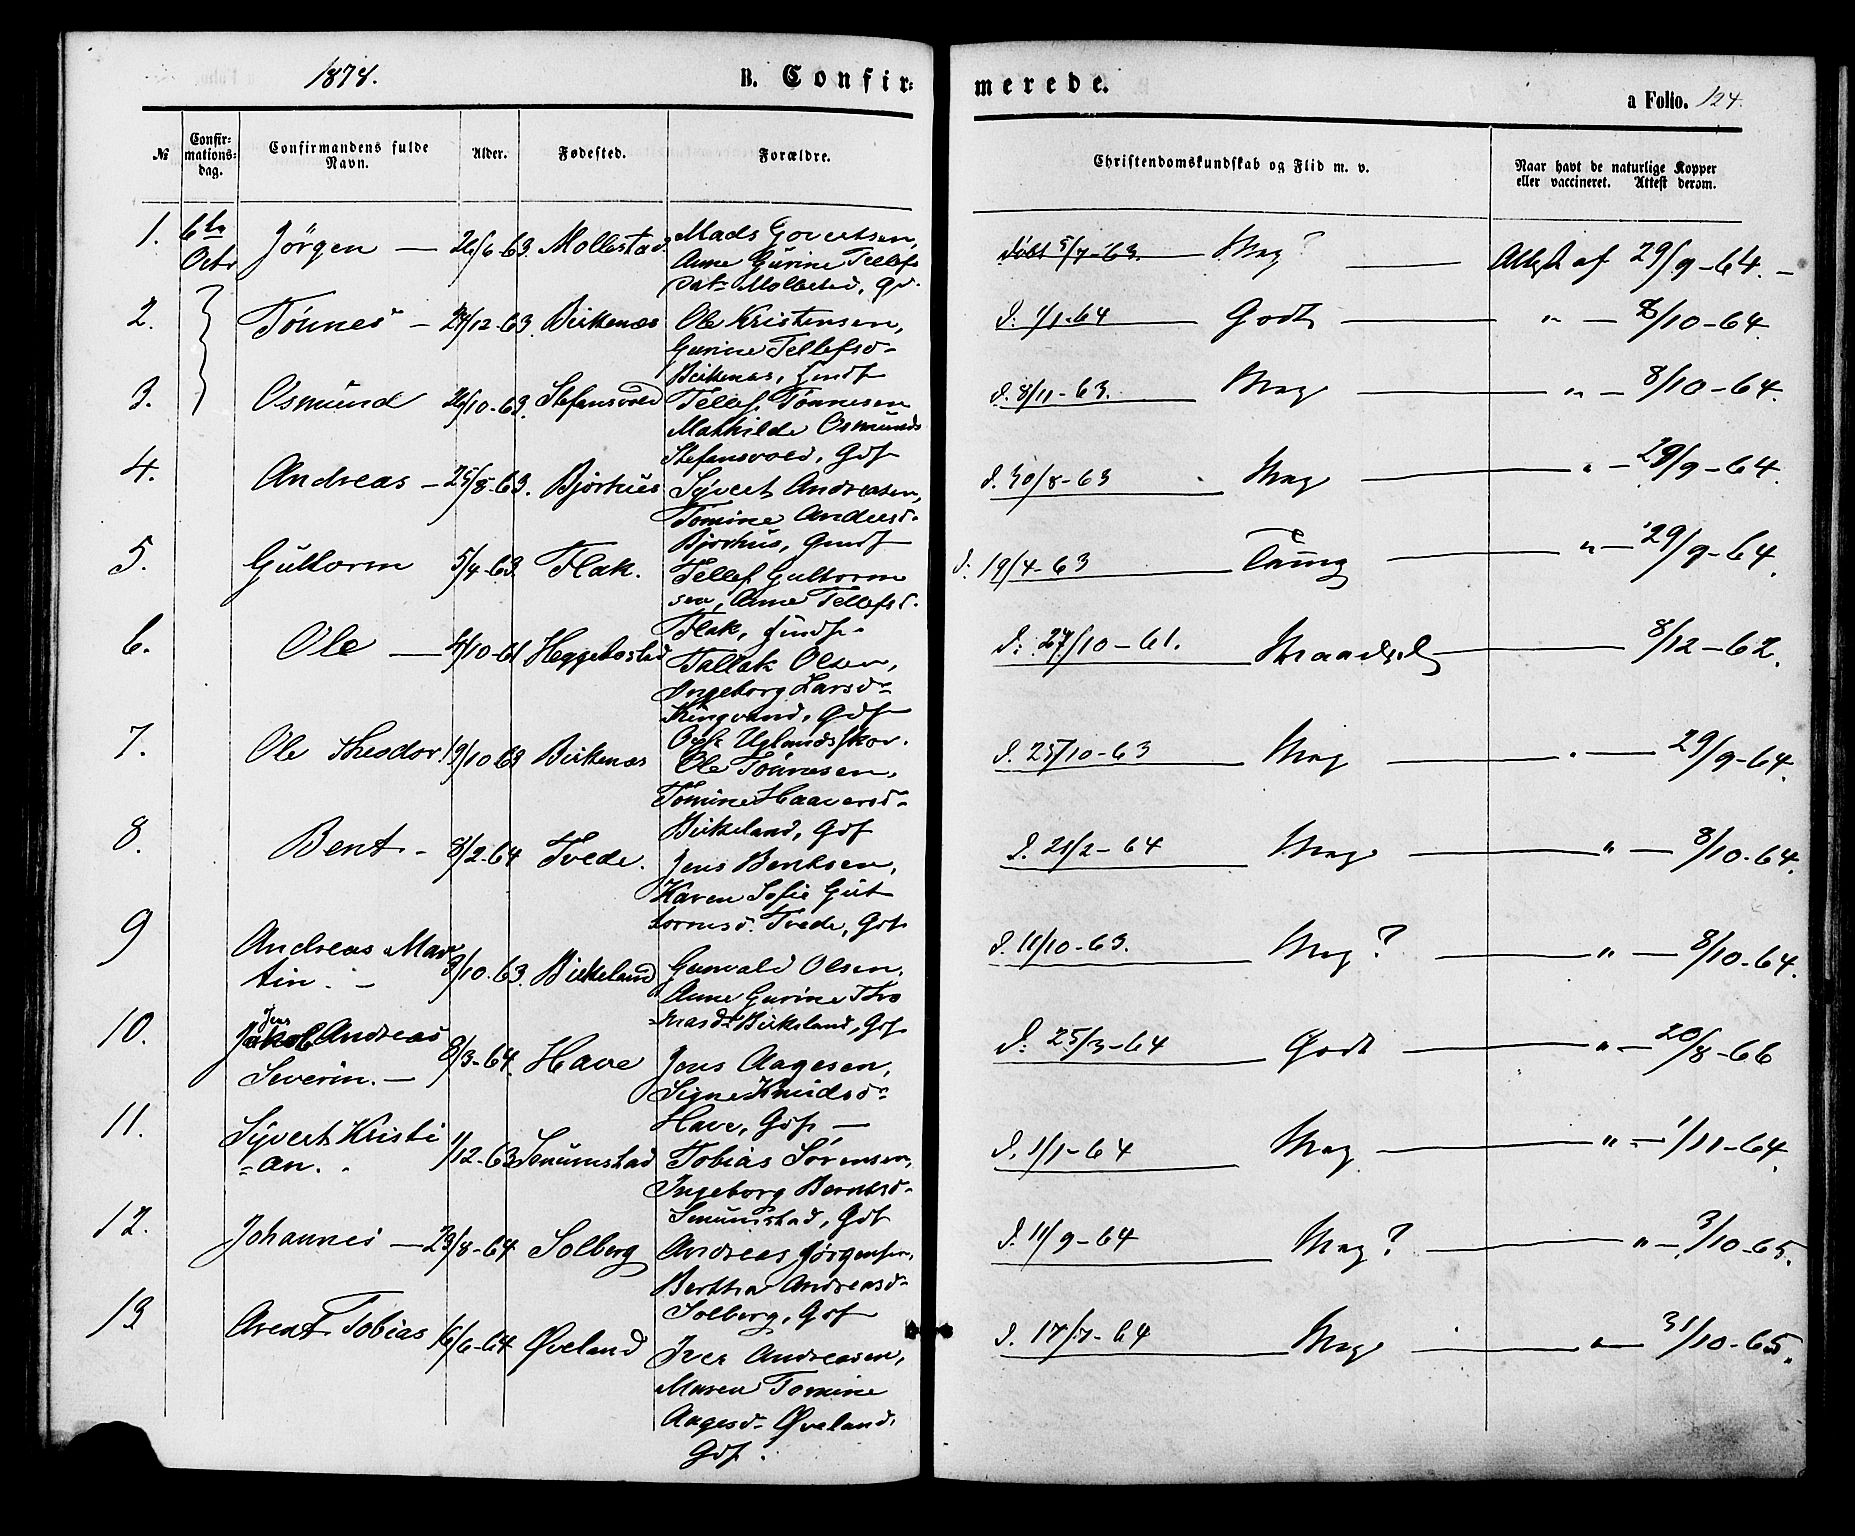 1878.
B. Confir=
merede.
a Folio. 124.
№
Confir=
mations=
dag.
Confirmandens fulde
Navn.
Alder.
Fødested.
Forældre.
Christendomskundskab og Flid m. v.
Naar havt de naturlige Kopper
eller vaccineret. Attest derom.
1. 6te Octr Jörgen — 26/6-63. Mollestad. Mads Govertsen,
Anne Gurine Tellefs
datr Mollestad, Gd.
Döbt 5/7-63. Meg? — Attest af 29/9-64. –
2. Tönnes – 27/12-63. Birkenæs Ole Kristensen,
Gurine Tellefsd-
Birkenæs,
d. 1/1-64 Godt — " — 8/10-64.
3. Osmund 26/10-63. Stefansvold Tellef Tönnesen
Mathilde Osmunds
Stefansvold, Gdf
d. 8/11-63. Meg — " — 8/10-64.
4. Andreas – 25/8-63. Bjorhus Syvert Andreasen,
Tomine Andersd.
Bjorhus,
d. 30/8-63 Meg — " — 29/9-64.
5. Guttorm 5/4-63. Flak. Tellef Guttorm
sen, Anne Tellefsd.
Flak,
d: 19/4-63 — " — 29/9-64.
6. Ole — 4/10-61 Heggetostad Tallak Olsen,
Ingeborg Larsd-
Ringvand, Gdf
Opf: Uglandsskov.
d: 27/10-61. Maadelig — 8/12-62.
7. Ole Theodor 19/10-63 Birkenæs Ole Tönnesen,
Tomine Haaversd-
Birkeland, Gdf
d. 25/10-63 Meg — " — 29/9-64.
8. Bent. – 8/2-64 Tvede. Jens Bentsen,
Karen Sofie Gut
tormsd. Tvede, Gdf
d. 21/2-64 Meg — " — 8/10-64.
9 Andreas Mar
tin. – 3/10-63. Birkeland Gunvald Olsen,
Anne Gurine Tho
masdr Birkeland, Gdf
d. 11/10-63. Meg? " — 8/10-64.
10. Jens
Jakob Andreas
Severin. — 8/3-64. Have Jens Aagesen,
Signe Knudsd-
Have, Gdf —
d: 25/3-64 Godt — " — 20/8-66
11. Syvert Kristi
=an. 1/12-63 Senumstad Tobias Sörensen,
Ingeborg Berntsd-
Senumstad, Gdf
d. 1/1-64 Meg — " — 1/11-64.
12. Johannes — 23/8-64 Solberg Andreas Jörgensen,
Berthe Andreasd-
Solberg, Gdf
d. 11/9-64 Meg? — " — 3/10-65.
13 Arent Tobias 16/6-64 Øveland Iver Andreasen,
Maren Tomine
Aagesd- Øveland,
Gdf.
d. 17/7-64 Meg — " — 31/10-65.